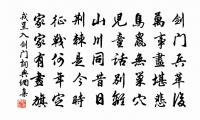 劍門兵革後
萬事盡堪悲
鳥鼠無巢穴
兒童話別離
山川同昔日
荊棘是今時
征戰何年定
家家有畫旗
戎昱入劍門詞典網集